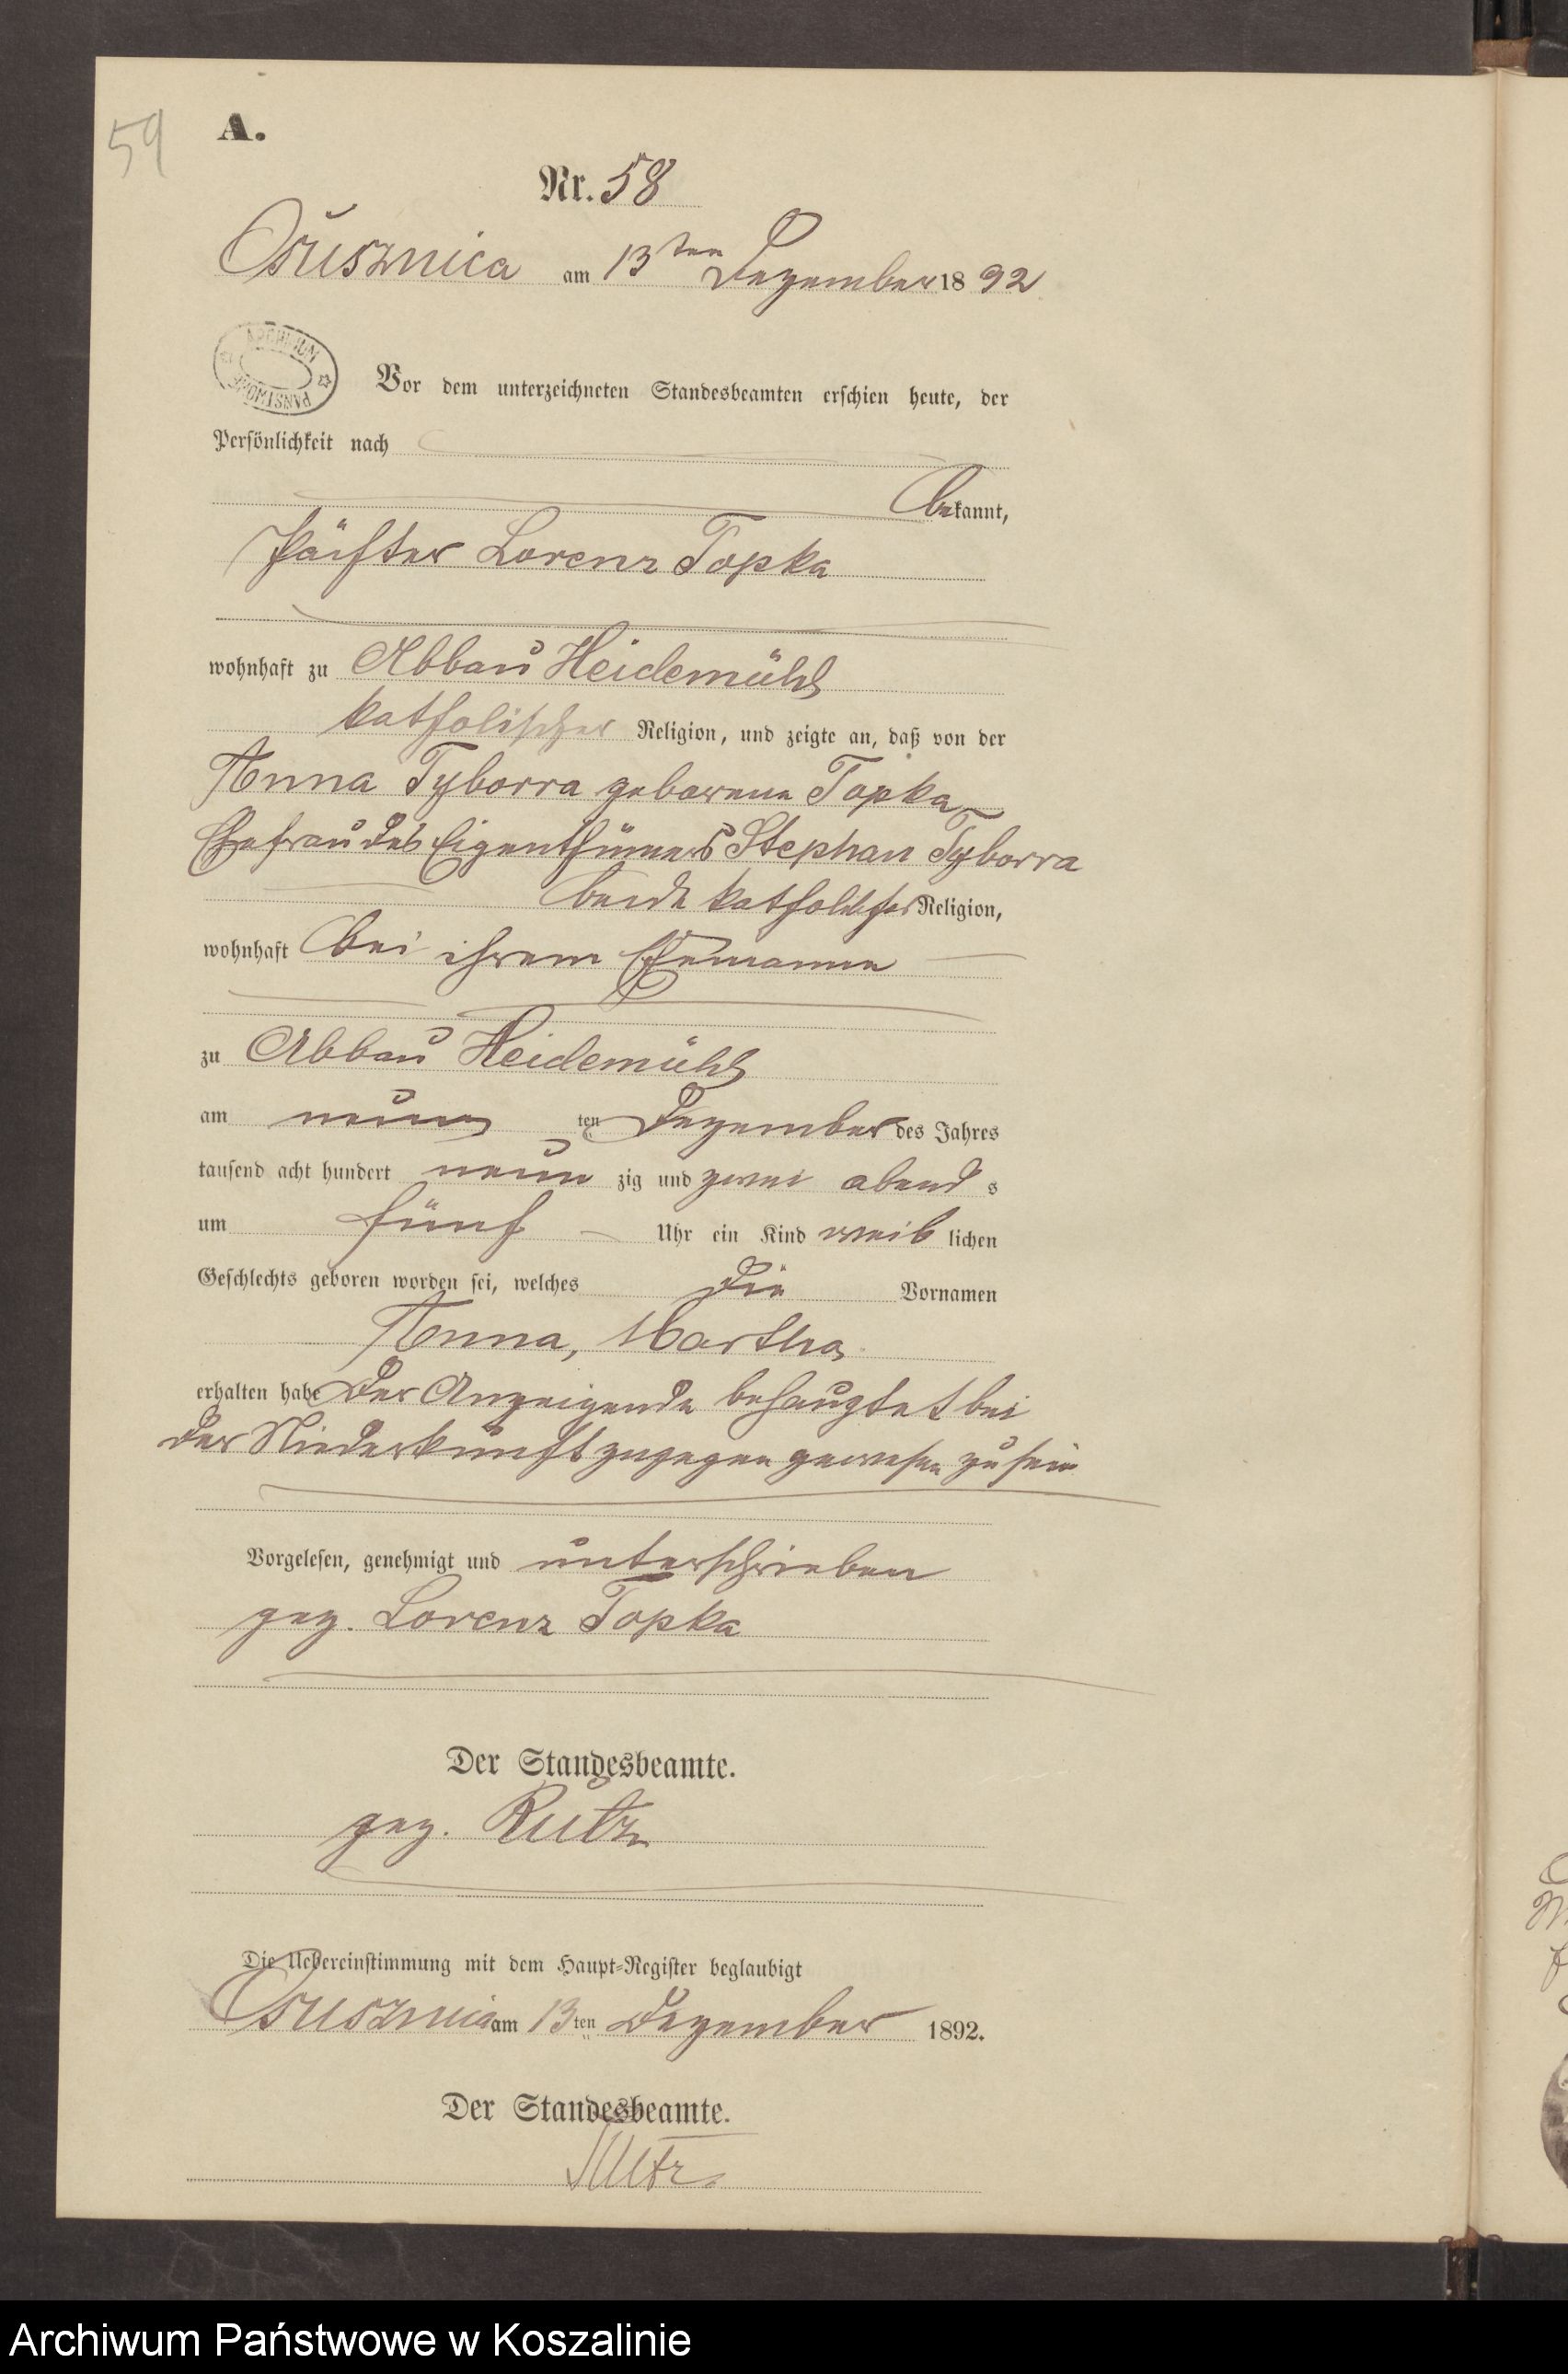 59
A.
Nr. 58
Osusznica am 13ten Dezember 1892
ARCHIWUM PAŃSTWOWE
Vor dem unterzeichneten Standesbeamten erschien heute, der
Persönlichkeit nach
bekannt,
Lorenz Topka
wohnhaft zu Abbau Heidemühl
katholischer Religion, und zeigte an, daß von der
Anna Tyborra geborene Topka
Ehefrau des Eigenthümers Stephan Tyborra
beide katholischer Religion,
wohnhaft bei ihrem Ehemanne
zu Abbau Heidemühl
am neun ten Dezember des Jahres
tausend acht hundert neun zig und zwei abend s
um fünf Uhr ein Kind weib lichen
Geschlechts geboren worden sei, welches die Vornamen
Anna, Martha
erhalten habe Der Anzeigende behauptet bei
der Niederkunft zugegen gewesen zu sein
Vorgelesen, genehmigt und unterschrieben
gez. Lorenz Topka
Der Standesbeamte.
gez. Rutz
Die Uebereinstimmung mit dem Haupt-Register beglaubigt
Osusznica am 13ten Dezember 1892.
Der Standesbeamte.
Rutz
Archiwum Państwowe w Koszalinie